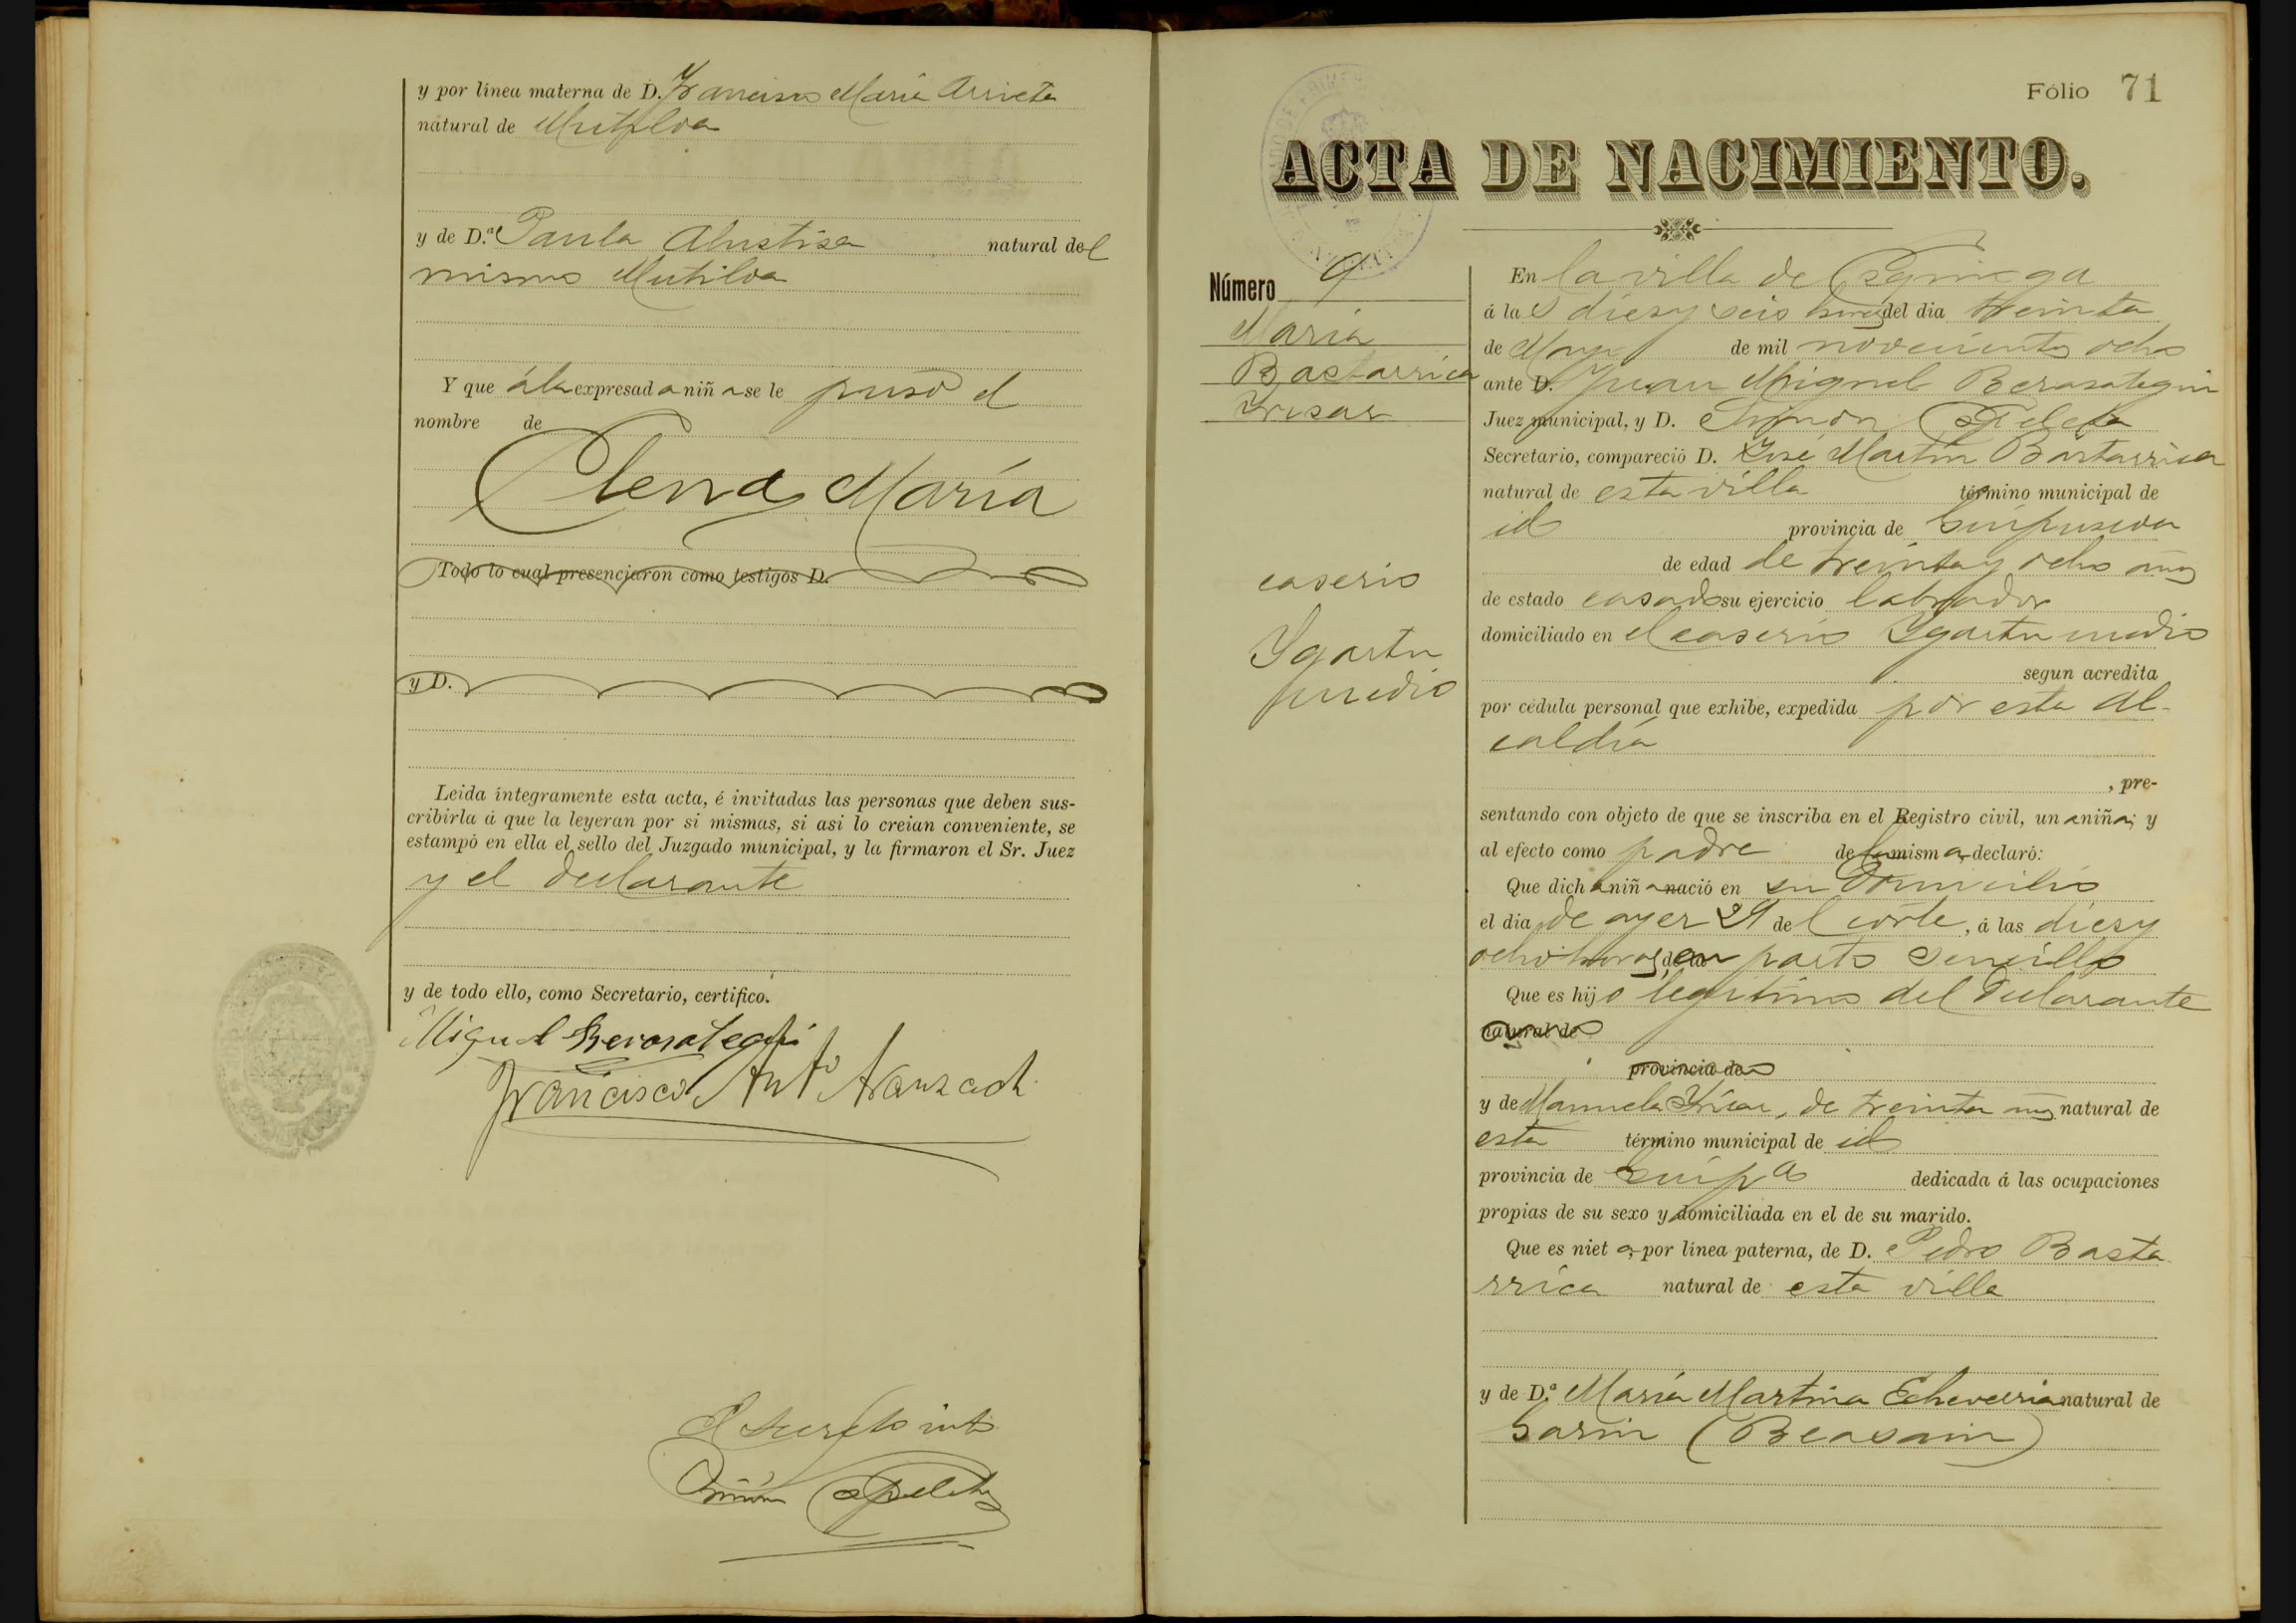 y por línea materna de D. Francisco María Arrieta
natural de Mutiloa
y de D.ª Paula Alustiza natural del
mismo Mutiloa
Y que á la expresada niña se le puso el
nombre de
Elena María
Todo lo cual presenciaron como testigos D.
y D.
Leida íntegramente esta acta, é invitadas las personas que deben sus-
cribirla á que la leyeran por si mismas, si asi lo creian conveniente, se
estampó en ella el sello del Juzgado municipal, y la firmaron el Sr. Juez
y el declarante
y de todo ello, como Secretario, certifico.
Miguel Berasategui
Francisco Antº
El Secretº intº
Simón
Fólio 71
ACTA DE NACIMIENTO.
Número 9
María
Bastarrica
Irisar
caserio
Ygartu
medio
En la villa de
á las diesy seis horas del dia treinta
de Mayo de mil novecientos ocho
ante D. Juan Miguel Berasategui
Juez municipal, y D. Simón
Secretario, compareció D. José Martín Bastarrica
natural de esta villa término municipal de
id provincia de Guipuscoa
de edad de treinta y ocho años
de estado casado su ejercicio labrador
domiciliado en el caserio Ygartu medio
segun acredita
por cédula personal que exhibe, expedida por esta Al-
caldía
, pre-
sentando con objeto de que se inscriba en el Registro civil, una niña; y
al efecto como padre de la misma, declaró:
Que dicha niña nació en su domicilio
el dia de ayer 29 del corte, á las diesy
ocho horas de en parto sencillo
Que es hijo legítimo del declarante
natural de
provincia de
y de Manuela Irisar, de treinta años natural de
esta término municipal de id
provincia de Guipª dedicada á las ocupaciones
propias de su sexo y domiciliada en el de su marido.
Que es nieta, por línea paterna, de D. Pedro Basta
rrica natural de esta villa
y de D.ª María Martina Echeverria natural de
Garin (Beasain)